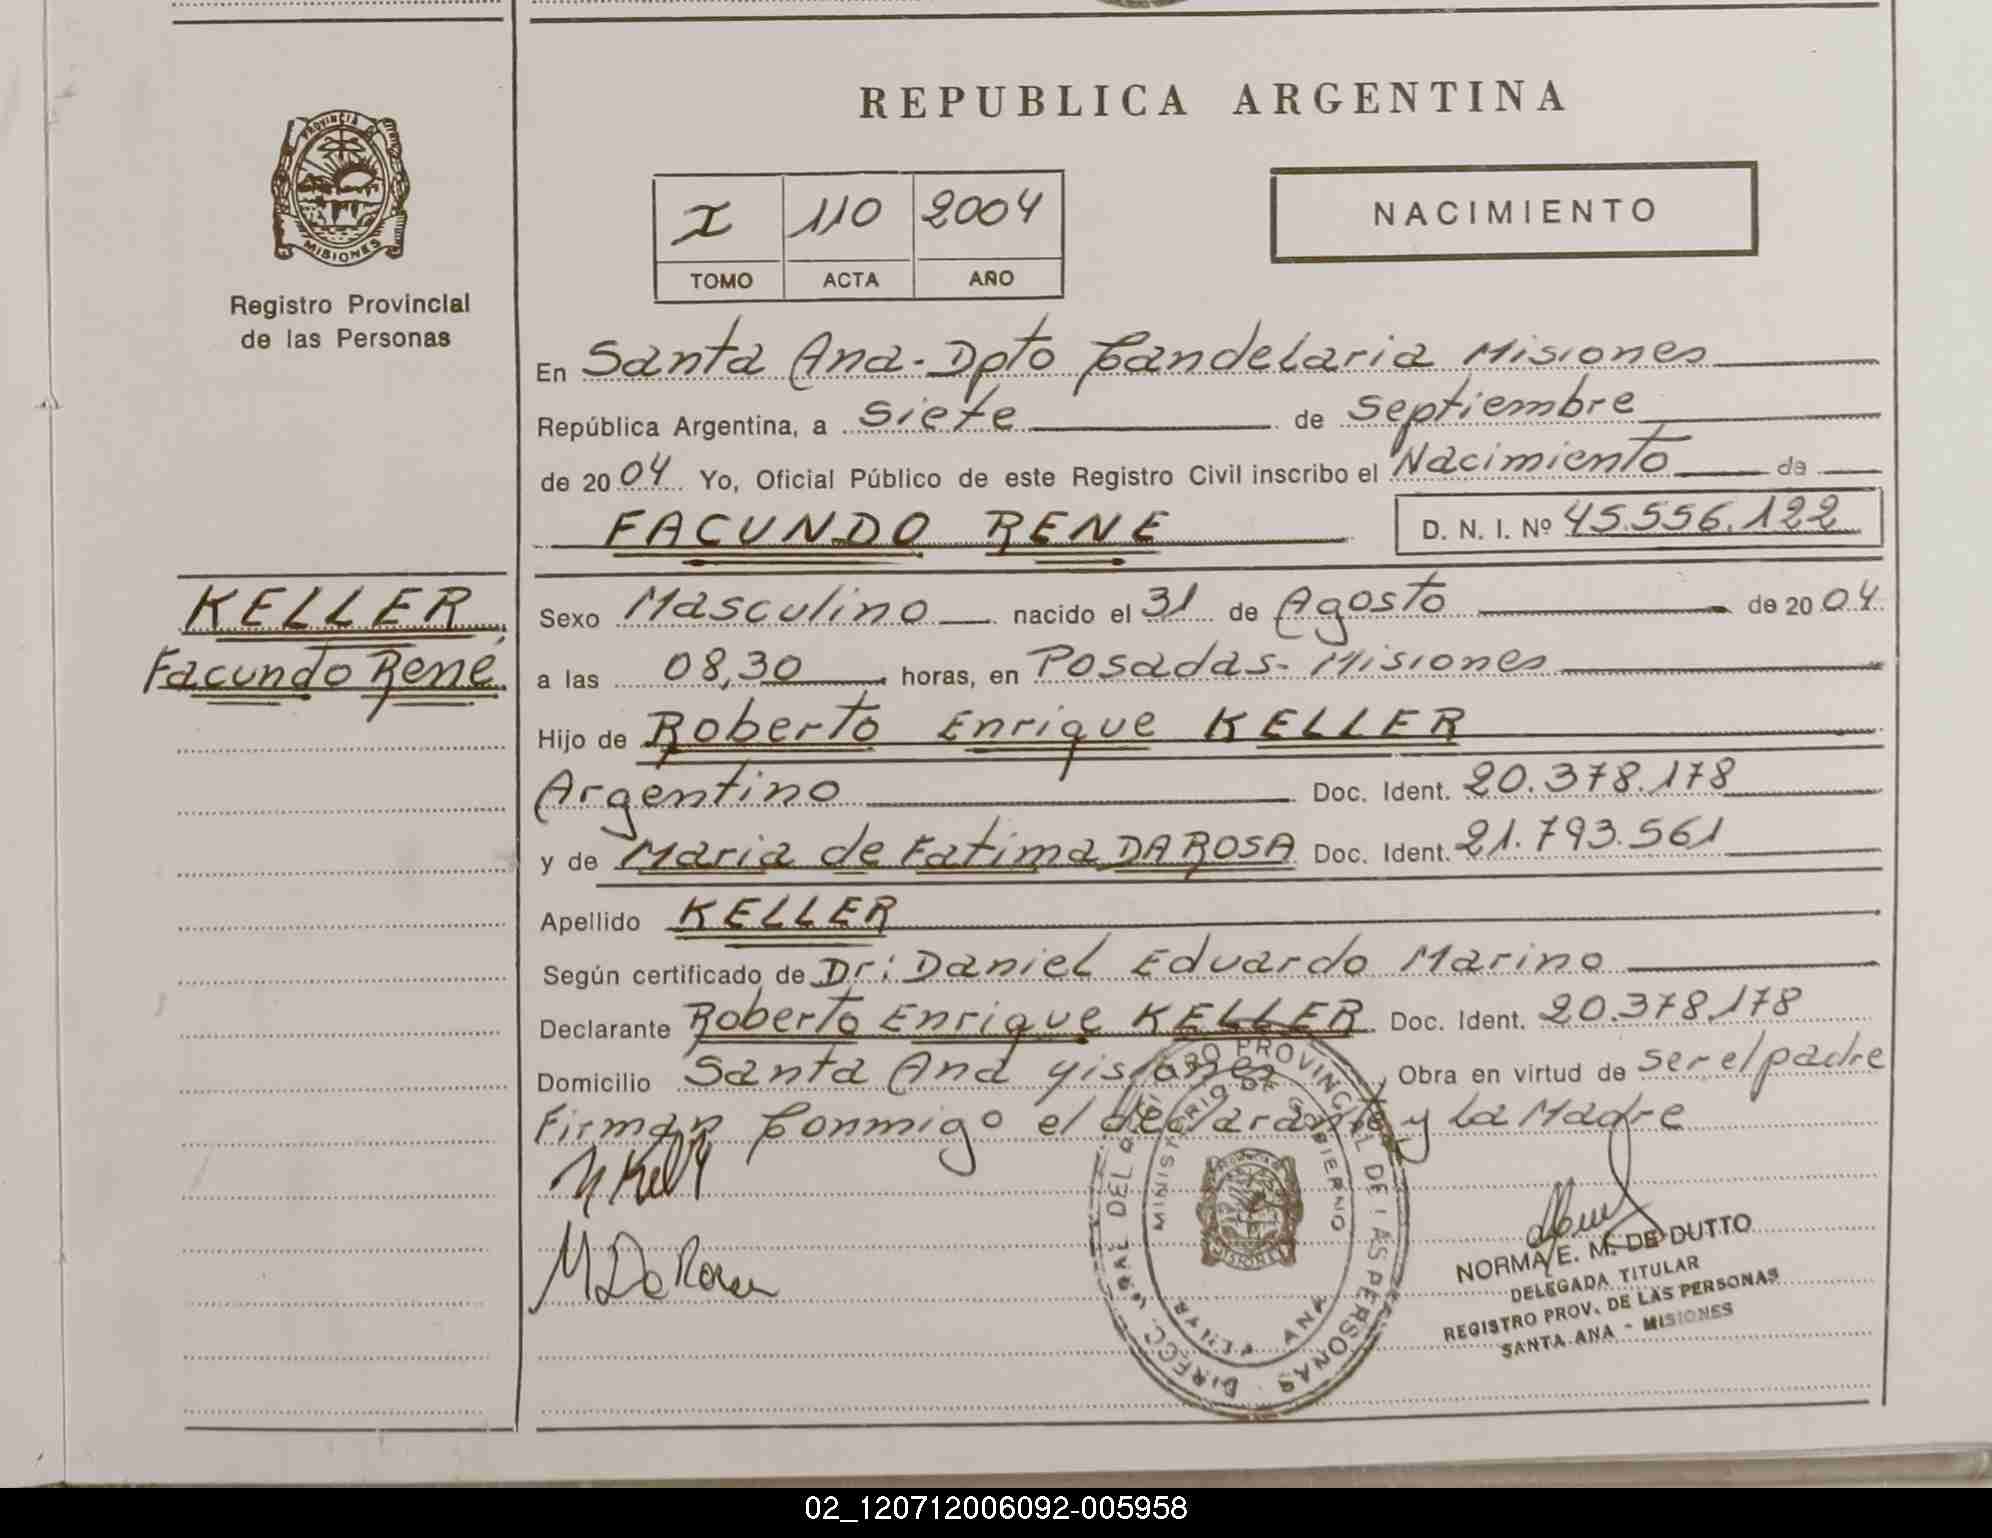 REPUBLICA ARGENTINA
PROVINCIA DE
MISIONES
Registro Provincial
de las Personas
I 110 2004
TOMO ACTA AÑO
NACIMIENTO
En Santa Ana - Dpto Candelaria Misiones
República Argentina, a siete de septiembre
de 2004 Yo, Oficial Público de este Registro Civil inscribo el Nacimiento de
FACUNDO RENE D. N. I. Nº 45.556.122
KELLER
Facundo René
Sexo Masculino nacido el 31 de Agosto de 2004
a las 08,30 horas, en Posadas - Misiones
Hijo de Roberto Enrique KELLER
Argentino Doc. Ident. 20.378.178
y de Maria de Fatima DA ROSA Doc. Ident. 21.793.561
Apellido KELLER
Según certificado de Dr: Daniel Eduardo Marino
Declarante Roberto Enrique KELLER Doc. Ident. 20.378.178
Domicilio Santa Ana Misiones Obra en virtud de ser el padre
Firman Conmigo el declarante y La Madre
M Da Rosa
MINISTERIO DE GOBIERNO
PROVINCIAL DE LAS PERSONAS
ANA
NORMA E. M. DE DUTTO
DELEGADA TITULAR
REGISTRO PROV. DE LAS PERSONAS
SANTA ANA - MISIONES
02_120712006092-005958